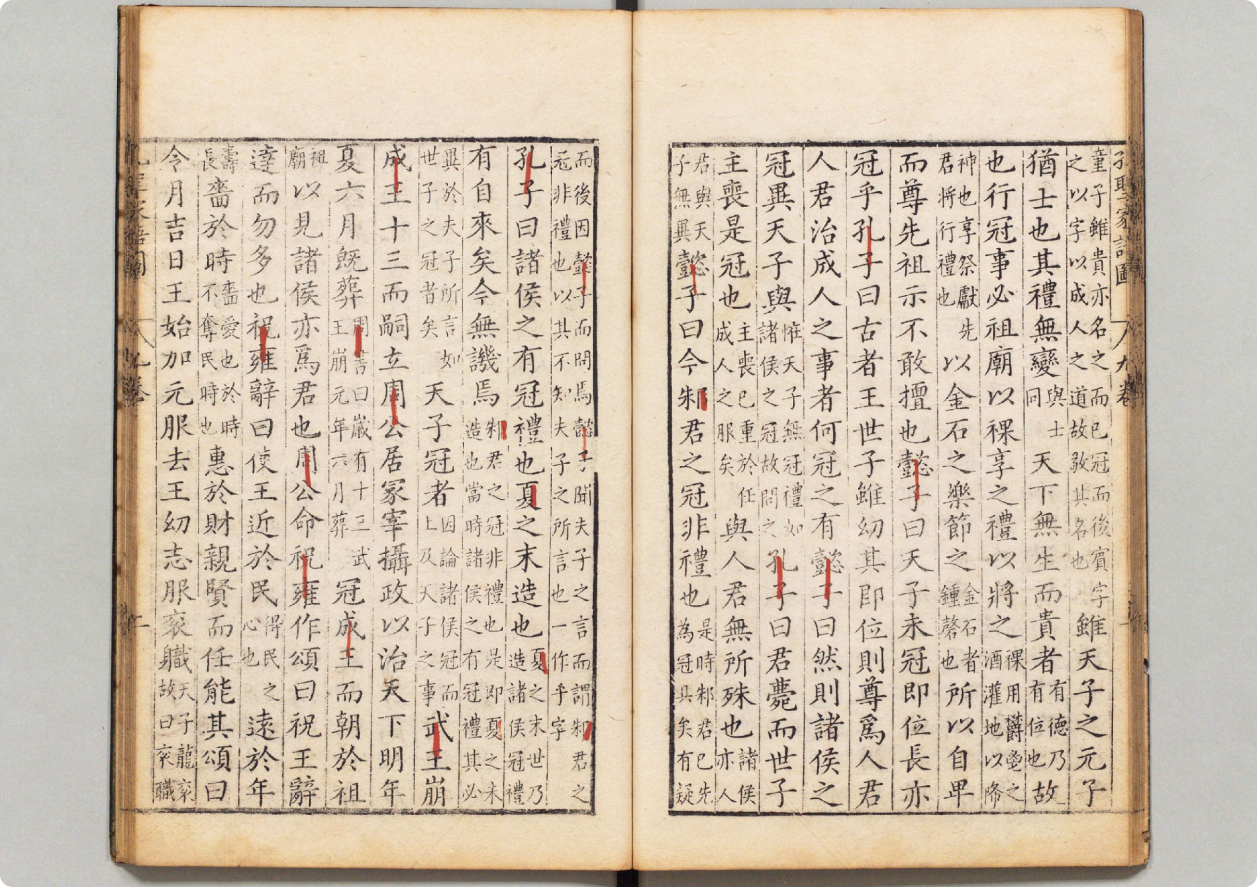 孔聖家語圖 九卷
童子雖貴亦名之而已冠而後賓字之以字以成人之道故敬其名也雖天子之元子
猶士也其禮無變與士同天下無生而貴者有德乃有位也故
也行冠事必祖廟以祼享之禮以將之祼用鬱鬯之酒灌地以降
神也享祭獻先君將行禮也以金石之樂節之金石者鍾磬也所以自卑
而尊先祖示不敢擅也懿子曰天子未冠即位長亦
冠乎孔子曰古者王世子雖幼其即位則尊爲人君
人君治成人之事者何冠之有懿子曰然則諸侯之
冠異天子與惟天子無冠禮如諸侯之冠故問之孔子曰君薨而世子
主喪是冠也主喪已重於任成人之服矣與人君無所殊也諸侯亦人
君與天子無異懿子曰今邾君之冠非禮也是時邾君已先為冠具矣有疑
而後因懿子而問焉懿子聞夫子之言而謂邾君之冠非禮也以其不知夫子之所言也一作乎字
孔子曰諸侯之有冠禮也夏之末造也夏之末世乃造諸侯冠禮
有自來矣今無譏焉邾君之冠非禮也是即夏之末造也當時諸侯之有冠禮其必
異於夫子所言如世子之冠者矣天子冠者因論諸侯冠而上及天子之事武王崩
成王十三而嗣立周公居冢宰攝政以治天下明年
夏六月旣葬周書曰歲有十三武王崩元年六月葬冠成王而朝於祖
祖廟以見諸侯亦爲君也周公命祝雍作頌曰祝王辭
達而勿多也祝雍辭曰使王近於民得民之心也遠於年
壽長嗇於時嗇愛也於時不奪民時也惠於財親賢而任能其頌曰
令月吉日王始加元服去王幼志服衮職天子龍衮故曰衮職